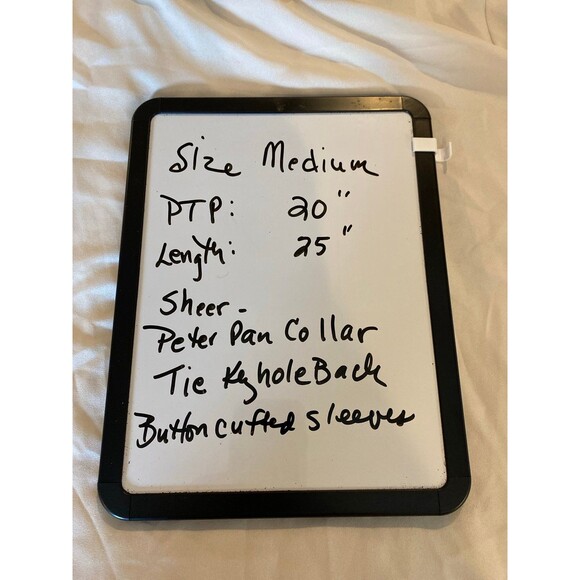 Size Medium
PTP: 20"
Length: 25"
Sheer -
Peter Pan Collar
Tie Keyhole Back
Button cuffed sleeves